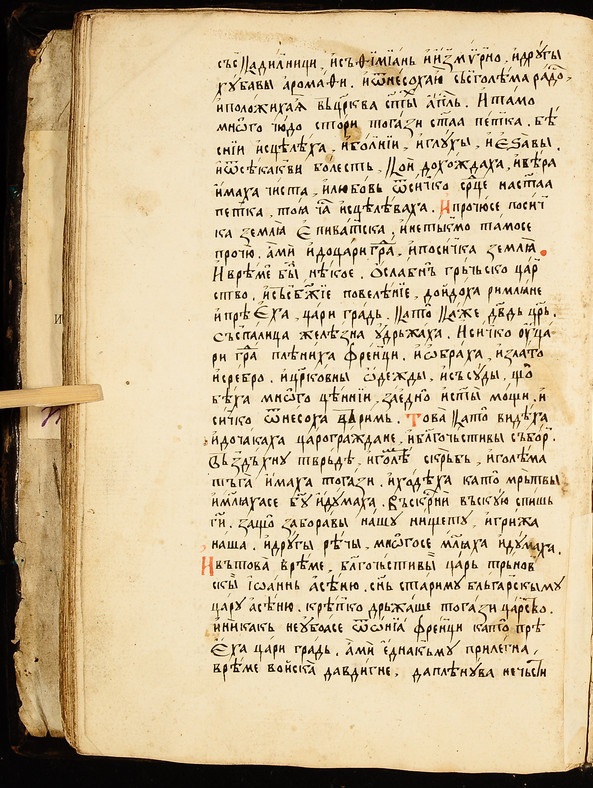 със кадилници, и съ ѳиміань и измурно, и другы
хубавы аромаѳи. и ѿнесохаю съсголѣма радо,
и положихаѧ въ црква ст҃ы ап҃ль. И тамо
мнѡго чюдо стори тогази ст҃аа петка. бѣ
сніи исцѣлѣха, и болніи, и глухы, и
и ѿ всѣкакви болесть, кои дохождаха, и вѣра
имаха чиста, и любовь ѿ сичко срц҃е на ст҃аа
петка, тоѧ г҃и исцѣлѣваха. И прочюсе по сич
ка землѧ Епиватска, и не тькмо тамо се
прочю, ами и до цари гра, и по сичка землѧ.
И врѣме бы нѣкое, ѡслабнѣ гръчьско цар
ство, и съсбж҃іе повелѣніе, дойдоха римлѣне
и прѣеха, цари градь. като каже дв҃дь ц҃рь.
съспалица желѣзна удрьжаха. И сичко ѹ ца
ри гра плѣниха френци, и ѡбраха, и злато
и сребро, и црковны ѡдежды, и съсуды, що
бѣха мнѡго цѣнніи, заедно и ст҃ы мощи, и
сичко ѿнесоха въримь. Това като видѣха
и дочакаха царограждане, и бл҃гочьстивы съборь.
въздьхну тврьдѣ, и голѣ скрьбь, и голѣма
тъга имаха тогази. и ходѣха като мрьтвы
и млꙗхасе бг҃у и думаха. Въскрⷭни въскую спишь
г҃и. защо заборавы нашу нищету, и грижа
наша. и другы рѣчы, мнѡгосе млꙗха и думаха.
И вътова врѣме, бл҃гочьстивы царь трънов
скы іѡаннь асѣню. сн҃ь старому бльгарскыму
цару асѣню. крѣпко дрьжаше тогази царⷭво.
и никакь неубоасе ѿ ѡніа френци като прѣ
еха цари градь. ами еднакъму прилегна,
врѣме войска давдигне, да плѣнува нечьсти